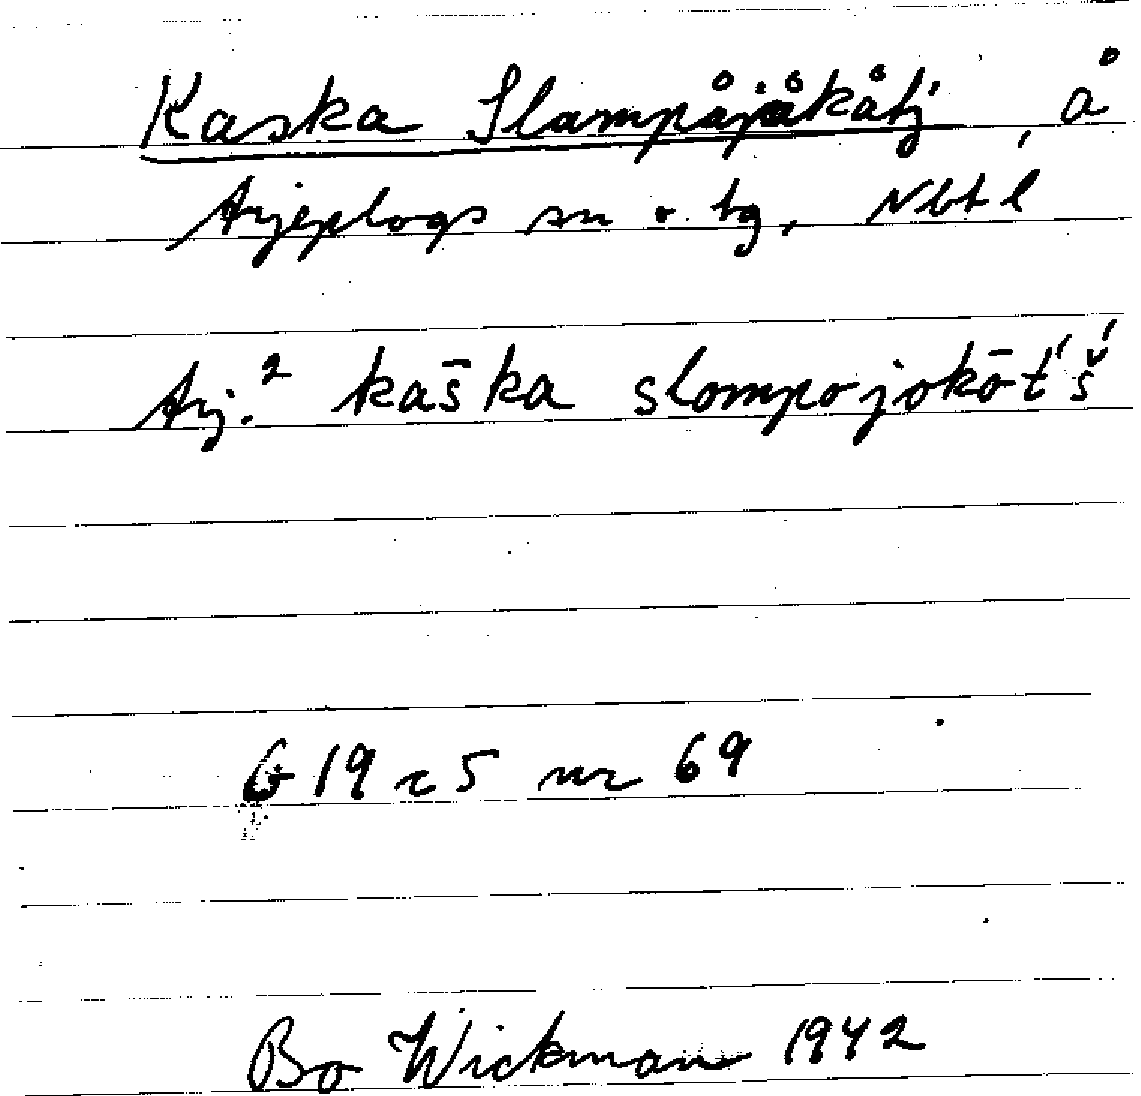 Kaska Slampåjåkåtj, å
Arjeplogs sn o. tg, Nbt l
Arj.² kas̄ka slompojokō̄t́š́
G 19 c 5 nr 69
Bo Wickman 1942